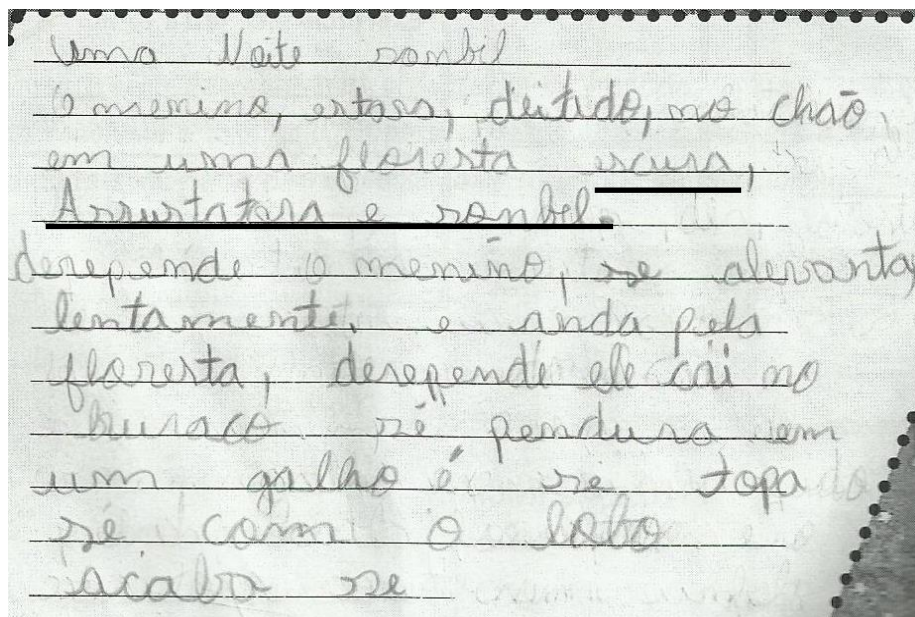 Uma Noite sonbil
O menino, estava, deitado, no chão,
em uma floresta escura,
Assustatora e sonbil.
derepende o menino, se alevanta,
lentamente. e anda pela
floresta, derepende ele cai no
buraco sé pendura em
um galho é se topa
sé com o lobo
acaba se